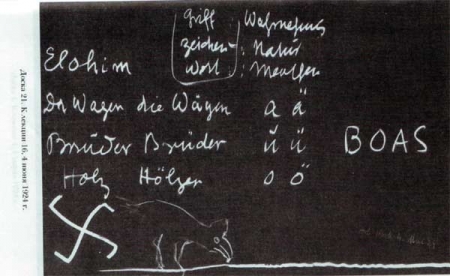 Griff :
zeichen : Natur
Wort : Menschen
Elohim
Der Wagen die Wägen a ä
Brŭder Brüder ŭ ü BOAS
Holz Hölzer o ö
Доска 21. К лекции 16, 4 июня 1924 г.